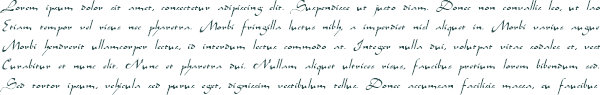 Lorem ipsum dolor sit amet, consectetur adipiscing elit. Suspendisse ut justo diam. Donec non convallis leo, ut lao
Etiam tempor vel risus nec pharetra. Morbi fringilla luctus nibh, a imperdiet nisl aliquet in. Morbi varius augue
Morbi hendrerit ullamcorper lectus, id interdum lectus commodo at. Integer nulla dui, volutpat vitae sodales et, vest
Curabitur et nunc elit. Nunc et pharetra dui. Nullam aliquet ultrices risus, faucibus pretium lorem bibendum sed.
Sed tortor ipsum, vehicula sed purus eget, dignissim vestibulum tellus. Donec accumsan facilisis massa, eu faucibus